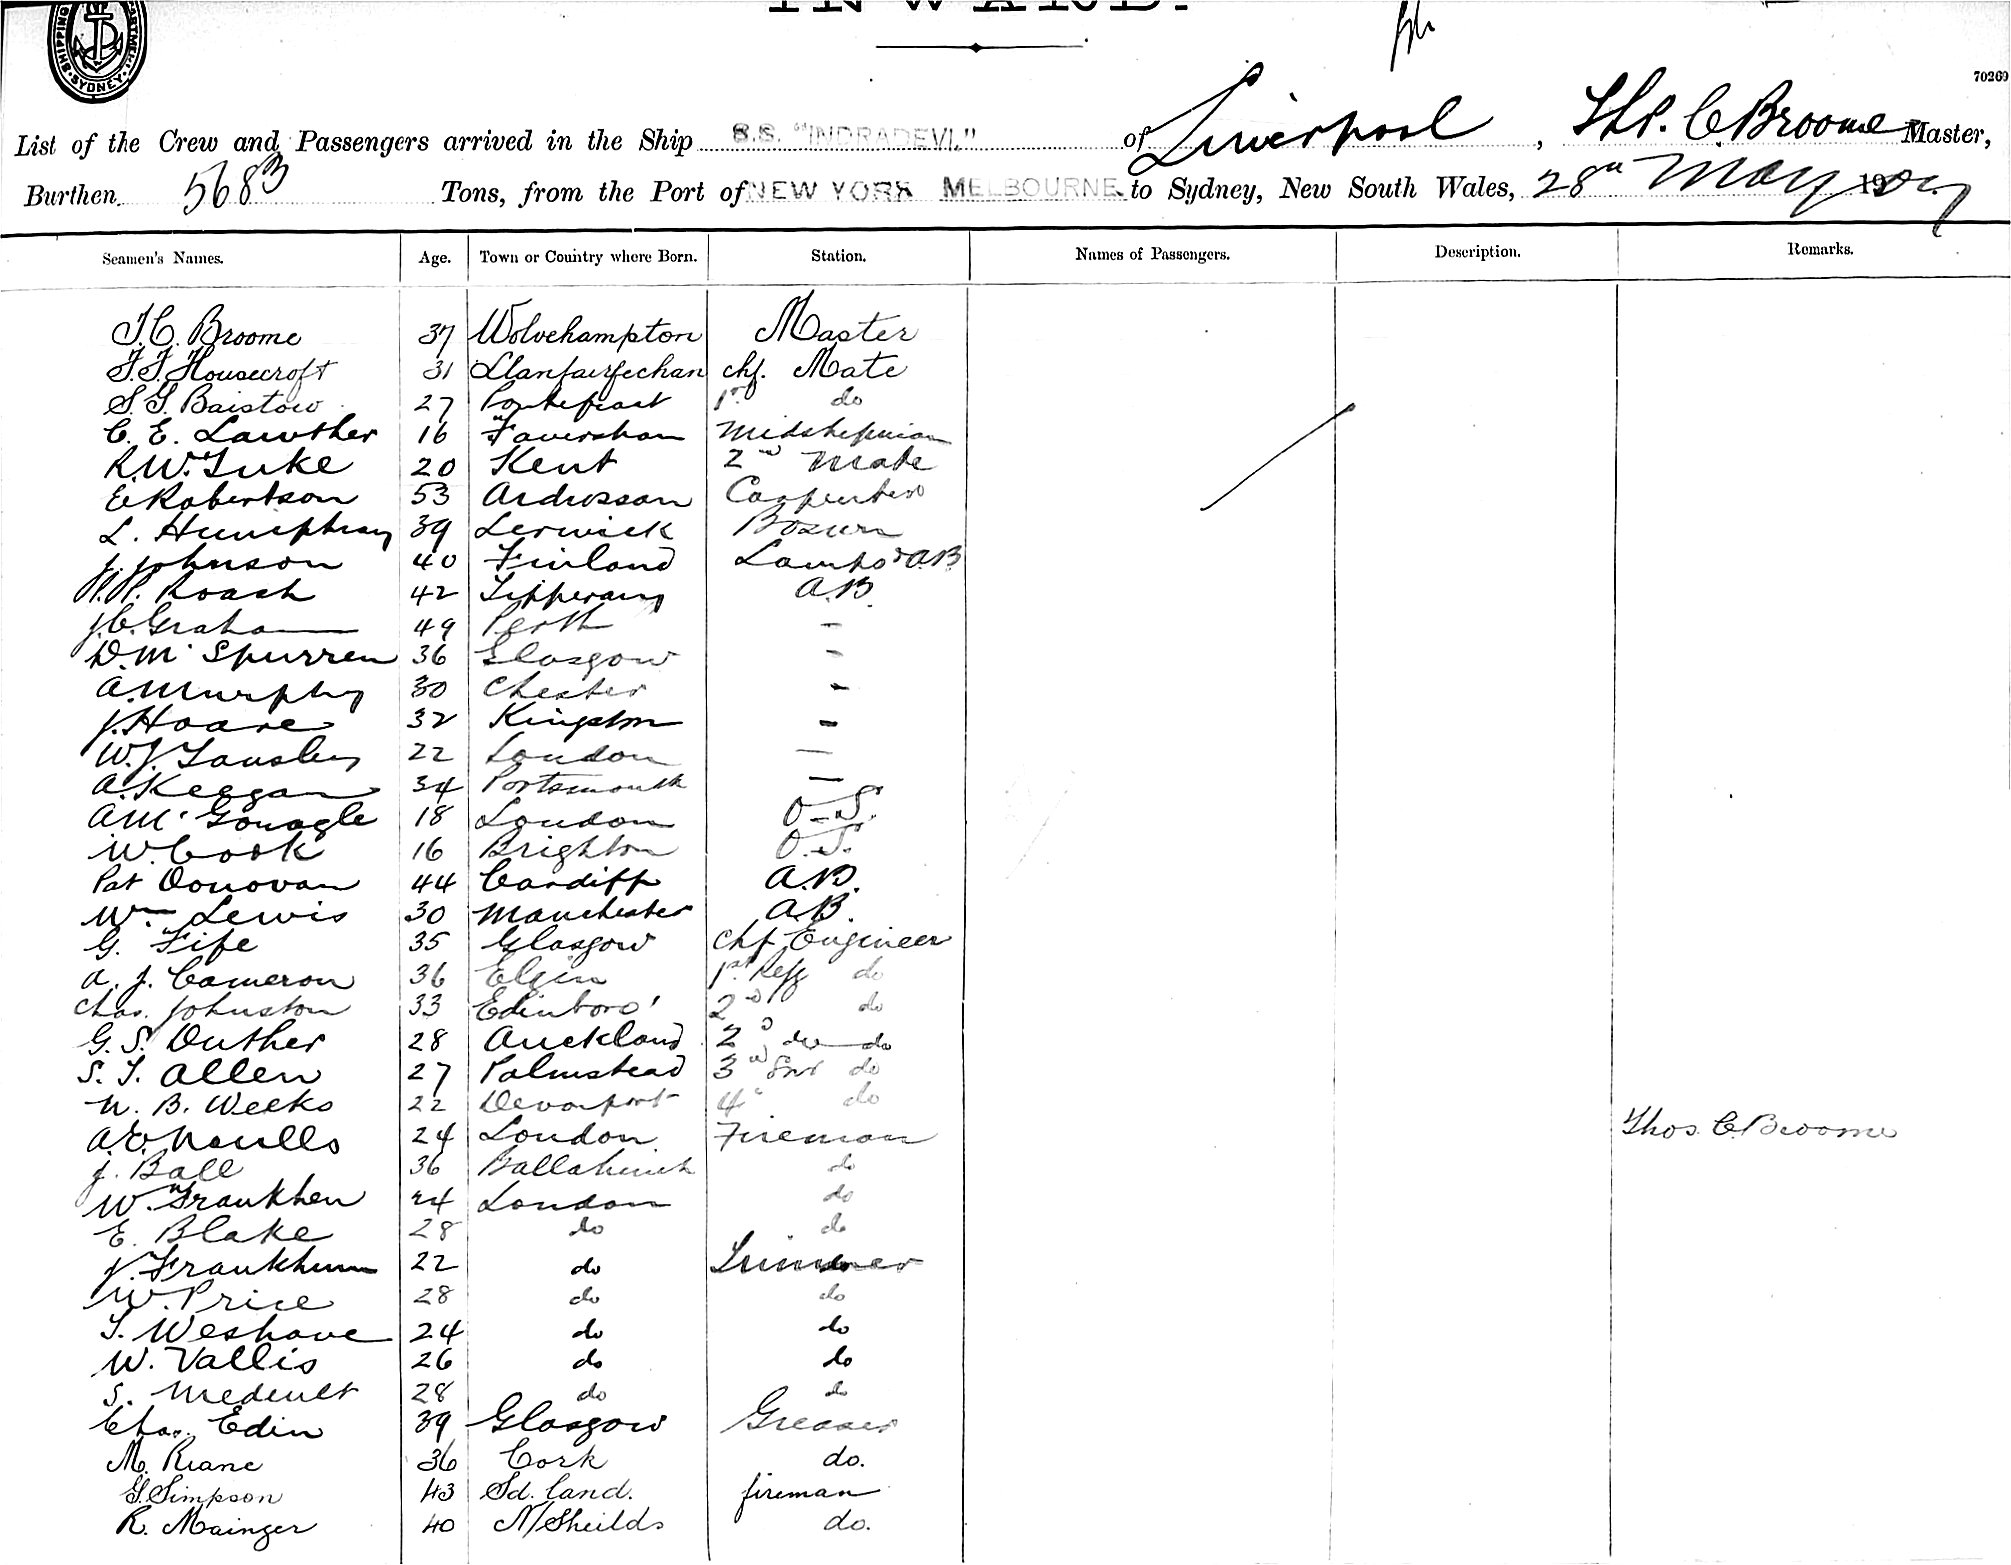 INWARD.
SHIPPING DEPARTMENT SYDNEY
70269
List of the Crew and Passengers arrived in the Ship S.S. "INDRADEVI." of Liverpool, Ths. C Broome Master,
Burthen 5683 Tons, from the Port of NEW YORK MELBOURNE to Sydney, New South Wales, 28th May 190
Seamen's Names. Age. Town or Country where Born. Station. Names of Passengers. Description. Remarks.
T.C. Broome 37 Wolvehampton Master
F.F. Housecroft 31 Llanfairfechan chf. Mate
S.G. Baistow 27 Pontefract 1st do
C. E. Lawther 16 Faversham Midshipman
R.W. Luke 20 Kent 2nd Mate
E Robertson 53 Ardrossan Carpenter
L. Humphray 39 Lerwick Bosun
J. Johnson 40 Finland Lamps & AB
Roach 42 Tipperary A.B.
J.C. Graham 49 Perth -
D. Mc Spurren 36 Glasgow -
A. Murphy 30 Chester -
J. Hoare 32 Kingston -
W.J. Tansley 22 London -
A. Keegan 34 Portsmouth -
A Mc Gonagle 18 London O.S.
W. Cook 16 Brighton O.S.
Pat Donovan 44 Cardiff A.B.
Wm Lewis 30 Manchester A.B.
G. Fife 35 Glasgow Chf Engineer
A. J. Cameron 36 Elgin 1st Refg do
Chas. Johnston 33 Edinboro' 2nd do
G. S. Outher 28 Auckland 2nd do
S. T. Allen 27 Palmstead 3rd do
N. B. Weeks 22 Devonport 4th do
A.E. Naulls 24 London Fireman Thos. C. Broome
J. Ball 36 Ballahinch do
W. Frankhen 24 London do
E. Blake 28 do do
J. Frankhum 22 do Trimmer
W. Price 28 do do
T. Weshave 24 do do
W. Vallis 26 do do
S. 28 do do
Chas. Edin 39 Glasgow Greaser
M. Riane 36 Cork do.
G. Simpson 43 Sd. land. fireman
R. Mainger 40 N/Sheilds do.